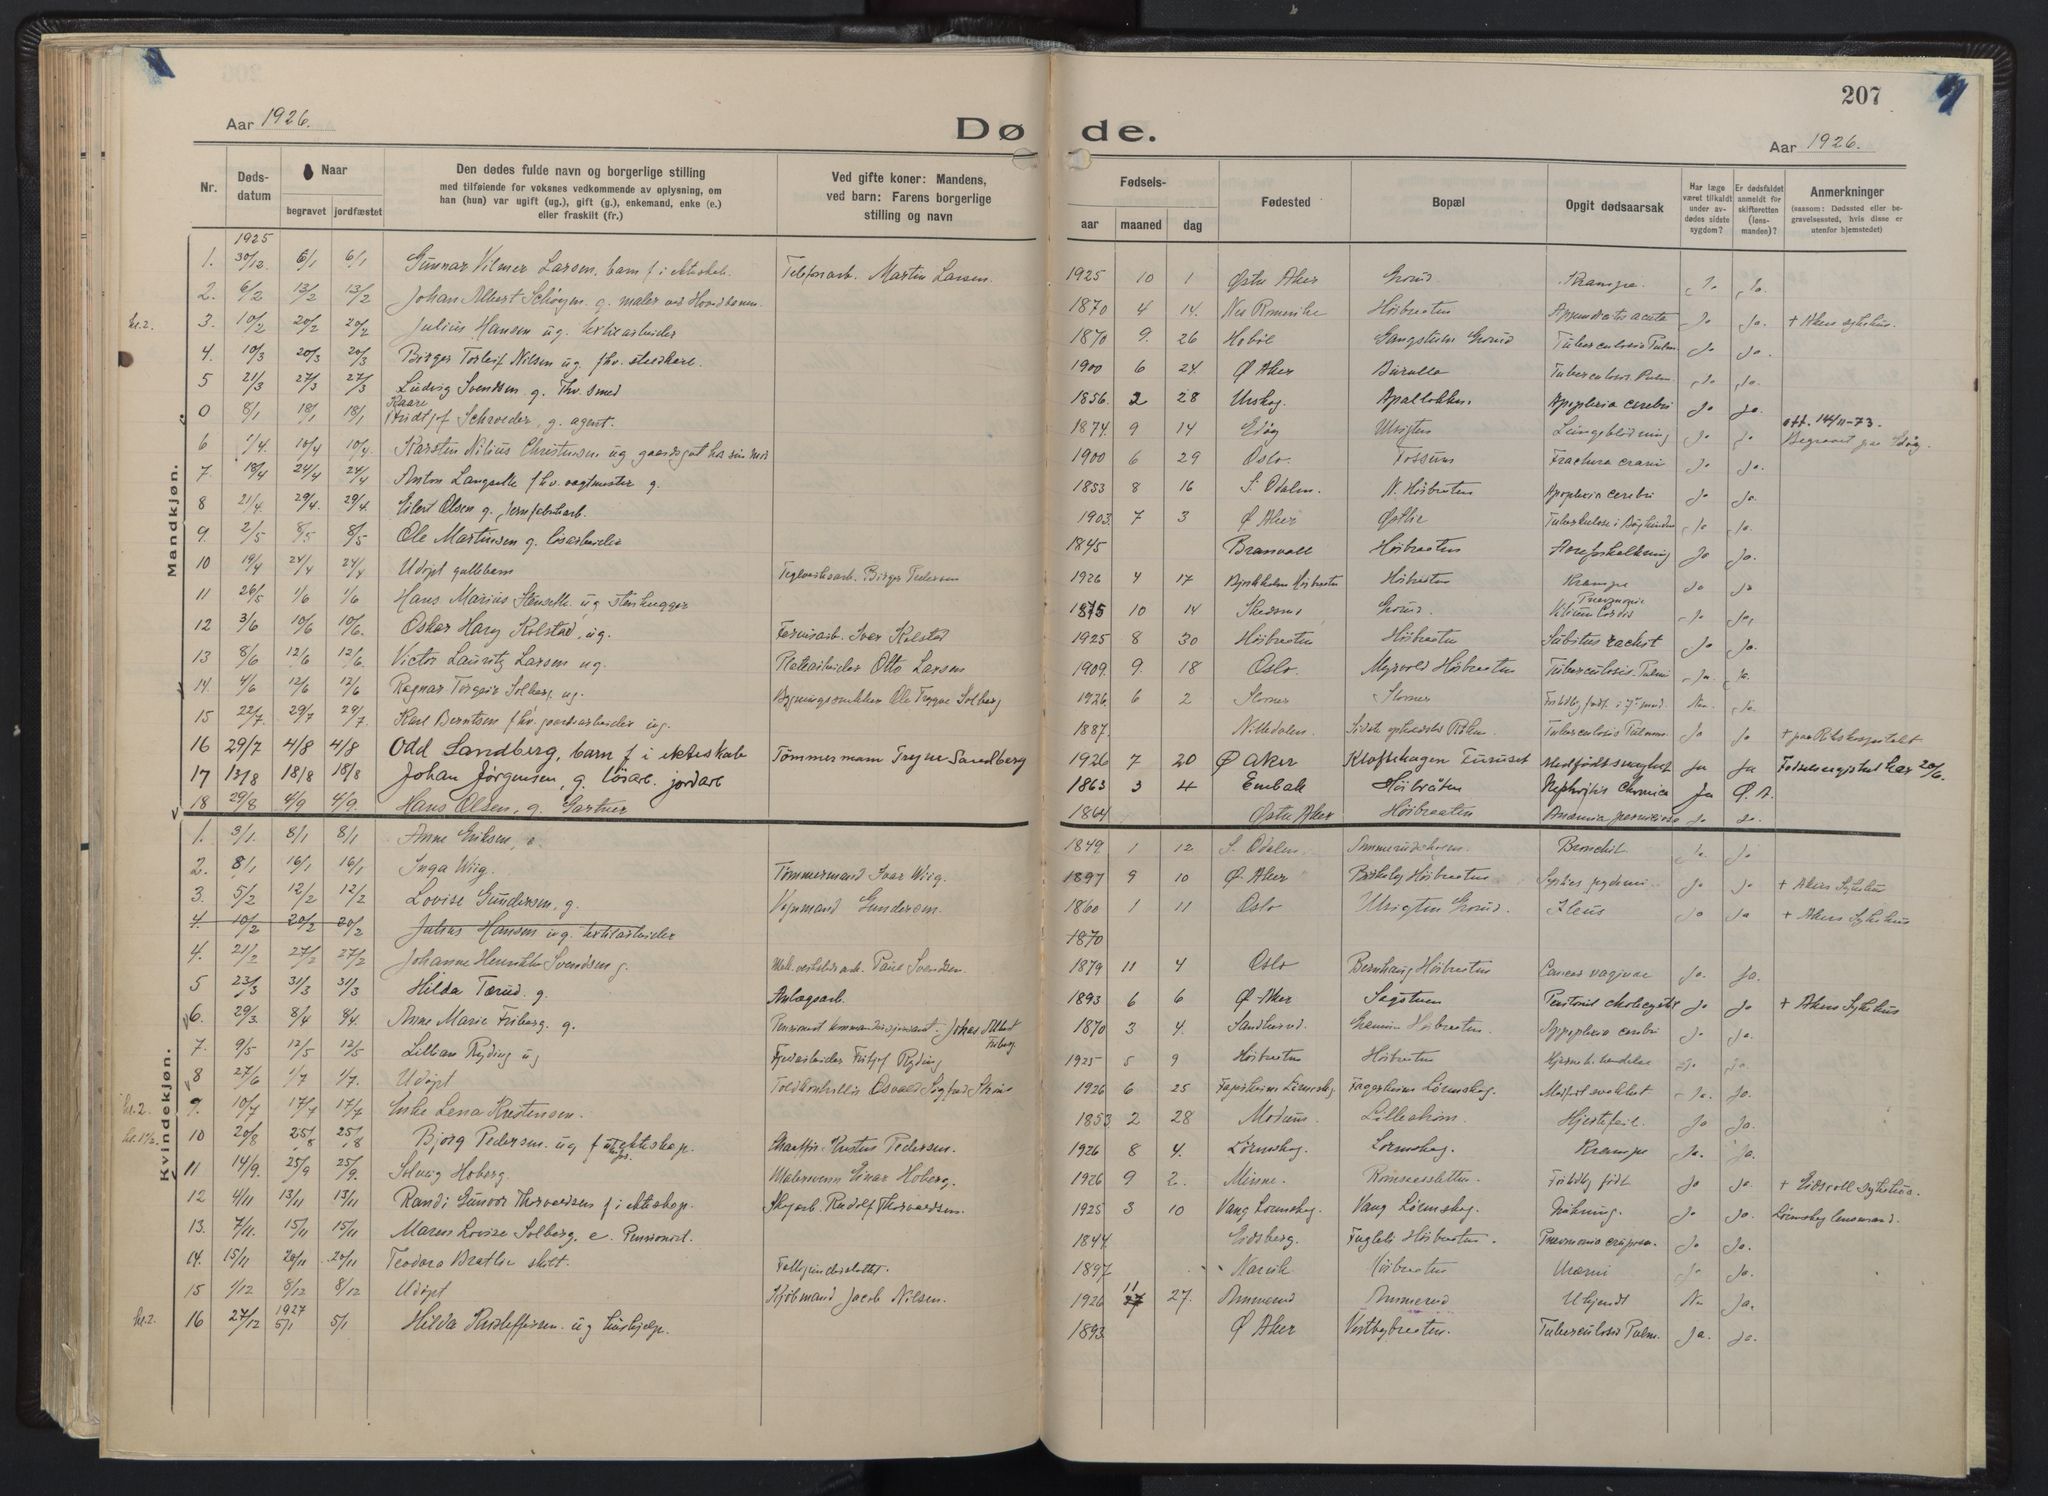 207
Aar 1926.
Dø de.
Aar 1926.
Nr.
Døds-datum
Naar
begravet jordfæstet
Den dødes fulde navn og borgerlige stilling
med tilføiende for voksnes vedkommende av oplysning, om
han (hun) var ugift (ug.), gift (g.), enkemand, enke (e.)
eller fraskilt (fr.)
Ved gifte koner: Mandens,
ved barn: Farens borgerlige
stilling og navn
Fødsels-
aar maaned dag
Fødested
Bopæl
Opgit dødsaarsak
Har læge været tilkaldt under av-dødes sidste sygdom?
Er dødsfaldet anmeldt for skifteretten (lens-manden)?
Anmerkninger
(saasom: Dødssted eller be-
gravelsessted, hvis disse er
utenfor hjemstedet)
Mandkjøn.
1925
1. 30/12 6/1 6/1 Gunnar Vilmer Larsen, barn f. i ekteskab. Telefonarb. Martin Larsen 1925 10 1 Østre Aker Grorud Krampe. Ja Ja.
2. 6/2 13/2 13/2 Johan Albert g. maler 1870 4 14. Nes Romerike Høibraaten Appendicitis acuta Ja Ja. + Akers sykehus.
kl. 2. 3. 10/2 20/2 20/2 Julius Hansen ug. tekstilarbeider 1870 9. 26 Hobøl Grorud Tuberculosis Pulm. Ja Ja.
4. 10/3 20/3 20/3 Birger Torleif Nilsen ug. fhv. 1900 6 24. Ø Aker Tuberculosis Pulm. Ja Ja.
5 21/3 27/3 27/3 Ludvig Svendsen g. fhv. smed 1856. 2 28 Urskog. Apalløkken Apoplexia cerebri Ja Ja.
0 8/1 18/1 18/1 Kaare Fridtjof Schrøder, g. agent. 1874. 9 14 Edøy Ulvigten Lungeblødning Ja Ja att. 14/11-73. Begravet paa Edøy
6 1/4. 10/4 10/4. Karsten Nilius Christensen ug gaardsgut hos sin mor 1900 6 29 Oslo. Fossum Fractura cranii Ja Ja.
7. 18/4 24/4 24/4 Anton Langseth fhv. vagtmester g. 1853 8 16 S. Odalen. N. Høibraaten Apoplexia cerebri Ja Ja.
8 21/4. 29/4. 29/4. Eilert Olsen g. Jernfabrikarb. 1903. 7 3 Ø Aker Østlie Ja Ja.
9. 2/5 8/5 8/5 Ole Martinsen g. løsarbeider 1845 Brandvall Høibraaten Aareforkalkning Ja Ja.
10 19/4 24/4 24/4 Udøpt guttebarn Teglverksarb. Birger Pedersen 1926 4 17 Bjerkholm Høibraaten Høibraaten Krampe Ja Ja
11 26/5 1/6 1/6 Hans Marius Stenseth. ug stenhugger 1875 10 14 Skedsmo Grorud. Pneumonie Vitium Cordis Ja Ja,
12 3/6 10/6 10/6. Oskar Harry Kolstad, ug. Farvisarb. Ivar Kolstad 1925 8 30 Høibraaten Høibraaten Subitus rachit Ja Ja.
13 8/6 12/6 12/6. Victor Lauritz Larsen ug. Platearbeider Otto Larsen 1909. 9. 18 Oslo. Myrvold Høibraaten Tuberculosis Pulm. Ja. Ja.
14. 4/6 12/6 12/6 Ragnar Torgeir Solberg, ug. Bygningssnekker Ole Trygve Solberg 1926. 6 2 Stovner Stovner Fortidlig født i 7de mnd. Nei Ja.
15 22/7. 29/7 29/7. Karl Berntsen fhv. gaardsarbeider ug. 1887. Nittedalen Tuberculosis Pulmon. Ja Ja + paa Rikshospitalet
16 29/7 4/8 4/8 Odd Sandberg, barn f i ekteskab Tømmermann Trygve Sandberg 1926 7 20 Ø Aker Klofthagen Furuset Medfødt svaghet Ja Ja Fødselsregistret her 20/6.
17 13/8 18/8 18/8 Johan Jørgensen, g. løsarb. jordarb 1863 3 4 Enebak Høibråten Nephritis chronica Ja Ø. A.
18 29/8 4/9 4/9. Hans Olsen, g. Gartner 1864 Østre Aker Høibraaten Anæmia perniciosa Ja Ja.
Kvindekjøn.
1. 3/1. 8/1 8/1 Anne Eriksen, e. 1849. 1 12 S. Odalen. Bronchit. Ja. Ja
2. 8/1 16/1 16/1 Inga Wiig. Tømmermand Ivar Wiig. 1897 9 10 Ø. Aker Birkeby Høibraaten Ja Ja + Akers Sykehus
3. 5/2 12/2 12/2 Lovise Gundersen, g. Vognmand Gundersen. 1860 1 11 Oslo Ulvigten Grorud. Ileus Ja Ja + Akers Sykehus
4. 10/2 20/2 20/2 Julius Hansen ug. tekstilarbeider 1870
4. 21/2 27/2 27/2 Johanne Henrikke Svendsen g. Mek. verkstedsarb. Paul Svendsen. 1879 11 4 Oslo Bernhaug Høibraaten Cancer vaginae Ja. Ja.
5 23/3 31/3 31/3 Hilda Tærud. g. Anlegsarb. 1893 6 6 Ø. Aker Sagstuen Ja Ja + Akers Sykehus
6. 29/3. 8/4 8/4. Anne Marie Friberg. g. Pensionert Johan Albert Friberg. 1870 3 4. Sandherred. Høibraaten. Apoplexia cerebri Ja Ja.
7. 9/5 12/5 12/5 Lillian Ryding ug Fjedarbeider Fritjof Ryding 1925 5 9 Høibraaten Høibraaten Ja Ja.
8 27/6 1/7 1/7. Udøpt Toldkontrollør Osvald Sigfred 1926 6 25 Fagerheim Lørenskog. Fagerheim Lørenskog. Medfødt svakhet Ja. Jo.
kl. 2. 9. 10/7 17/7 17/7 Enke Lena Kristensen. 1853 2 28 Modum. Lillestrøm. Hjertefeil. Ja Ja.
10 20/8 25/8 25/8 Bjørg Pedersen. ug f utenf. ekteskap. Kristian Pedersen. 1926 8 4. Lørenskog. Lørenskog. Krampe Ja. Ja.
11 14/9. 25/9 25/9. Solveig Hoberg. Malersvenn Einar Hoberg. 1926 9 2. Minne. Romsaasletten Fortidlig født Ja Ja. + Eidsvoll sykehus.
12 4/11 13/11 13/11 Randi Gunvor Thorvaldsen f i ekteskap. Skogarb. Rudolf Thorvaldsen. 1925 3 10 Vang Lørenskog. Vang Lørenskog. Ja Ja. Lørenskog lensmand.
13. 7/11. 15/11 15/11 Maren Lovise Solberg. e. Pensionist. 1844. Eidsberg. Fugleli Høibraaten. Pneumonia crupøsa. Ja Ja.
14. 15/11 20/11 20/11 Teodora Bratlie skilt. 1897 Narvik Høibraaten Uræmi Ja Ja.
15 1/12 8/12 8/12 Udøpt Kjøbmand Jacob Nilsen. 1926 11 27 27. Ammerud Ammerud Ukjendt Nei Ja.
kl. 2. 16 27/12 1927 5/1 5/1 Hilda Kristoffersen. ug hushjelp. 1893 Ø Aker Vestbybraaten. Tuberculosis Pulm. Ja. Ja.